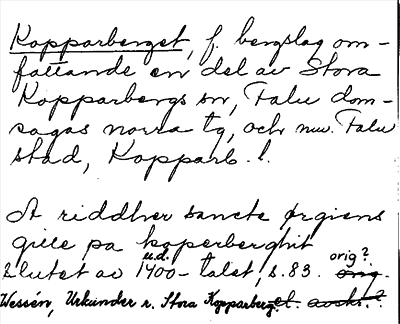 Kopparberget, f. bergslag om-
fattande en del av Stora
Kopparbergs sn, Falu dom-
sagas norra tg, och nuv. Falu
stad, Kopparb. l.
At riddher sancte ørgiens
gille pa koperberghit
u.d. orig?
Slutet av 1400-talet, s. 83. orig.
Wessén, Urkunder r. Stora Kopparberget. avskr.?